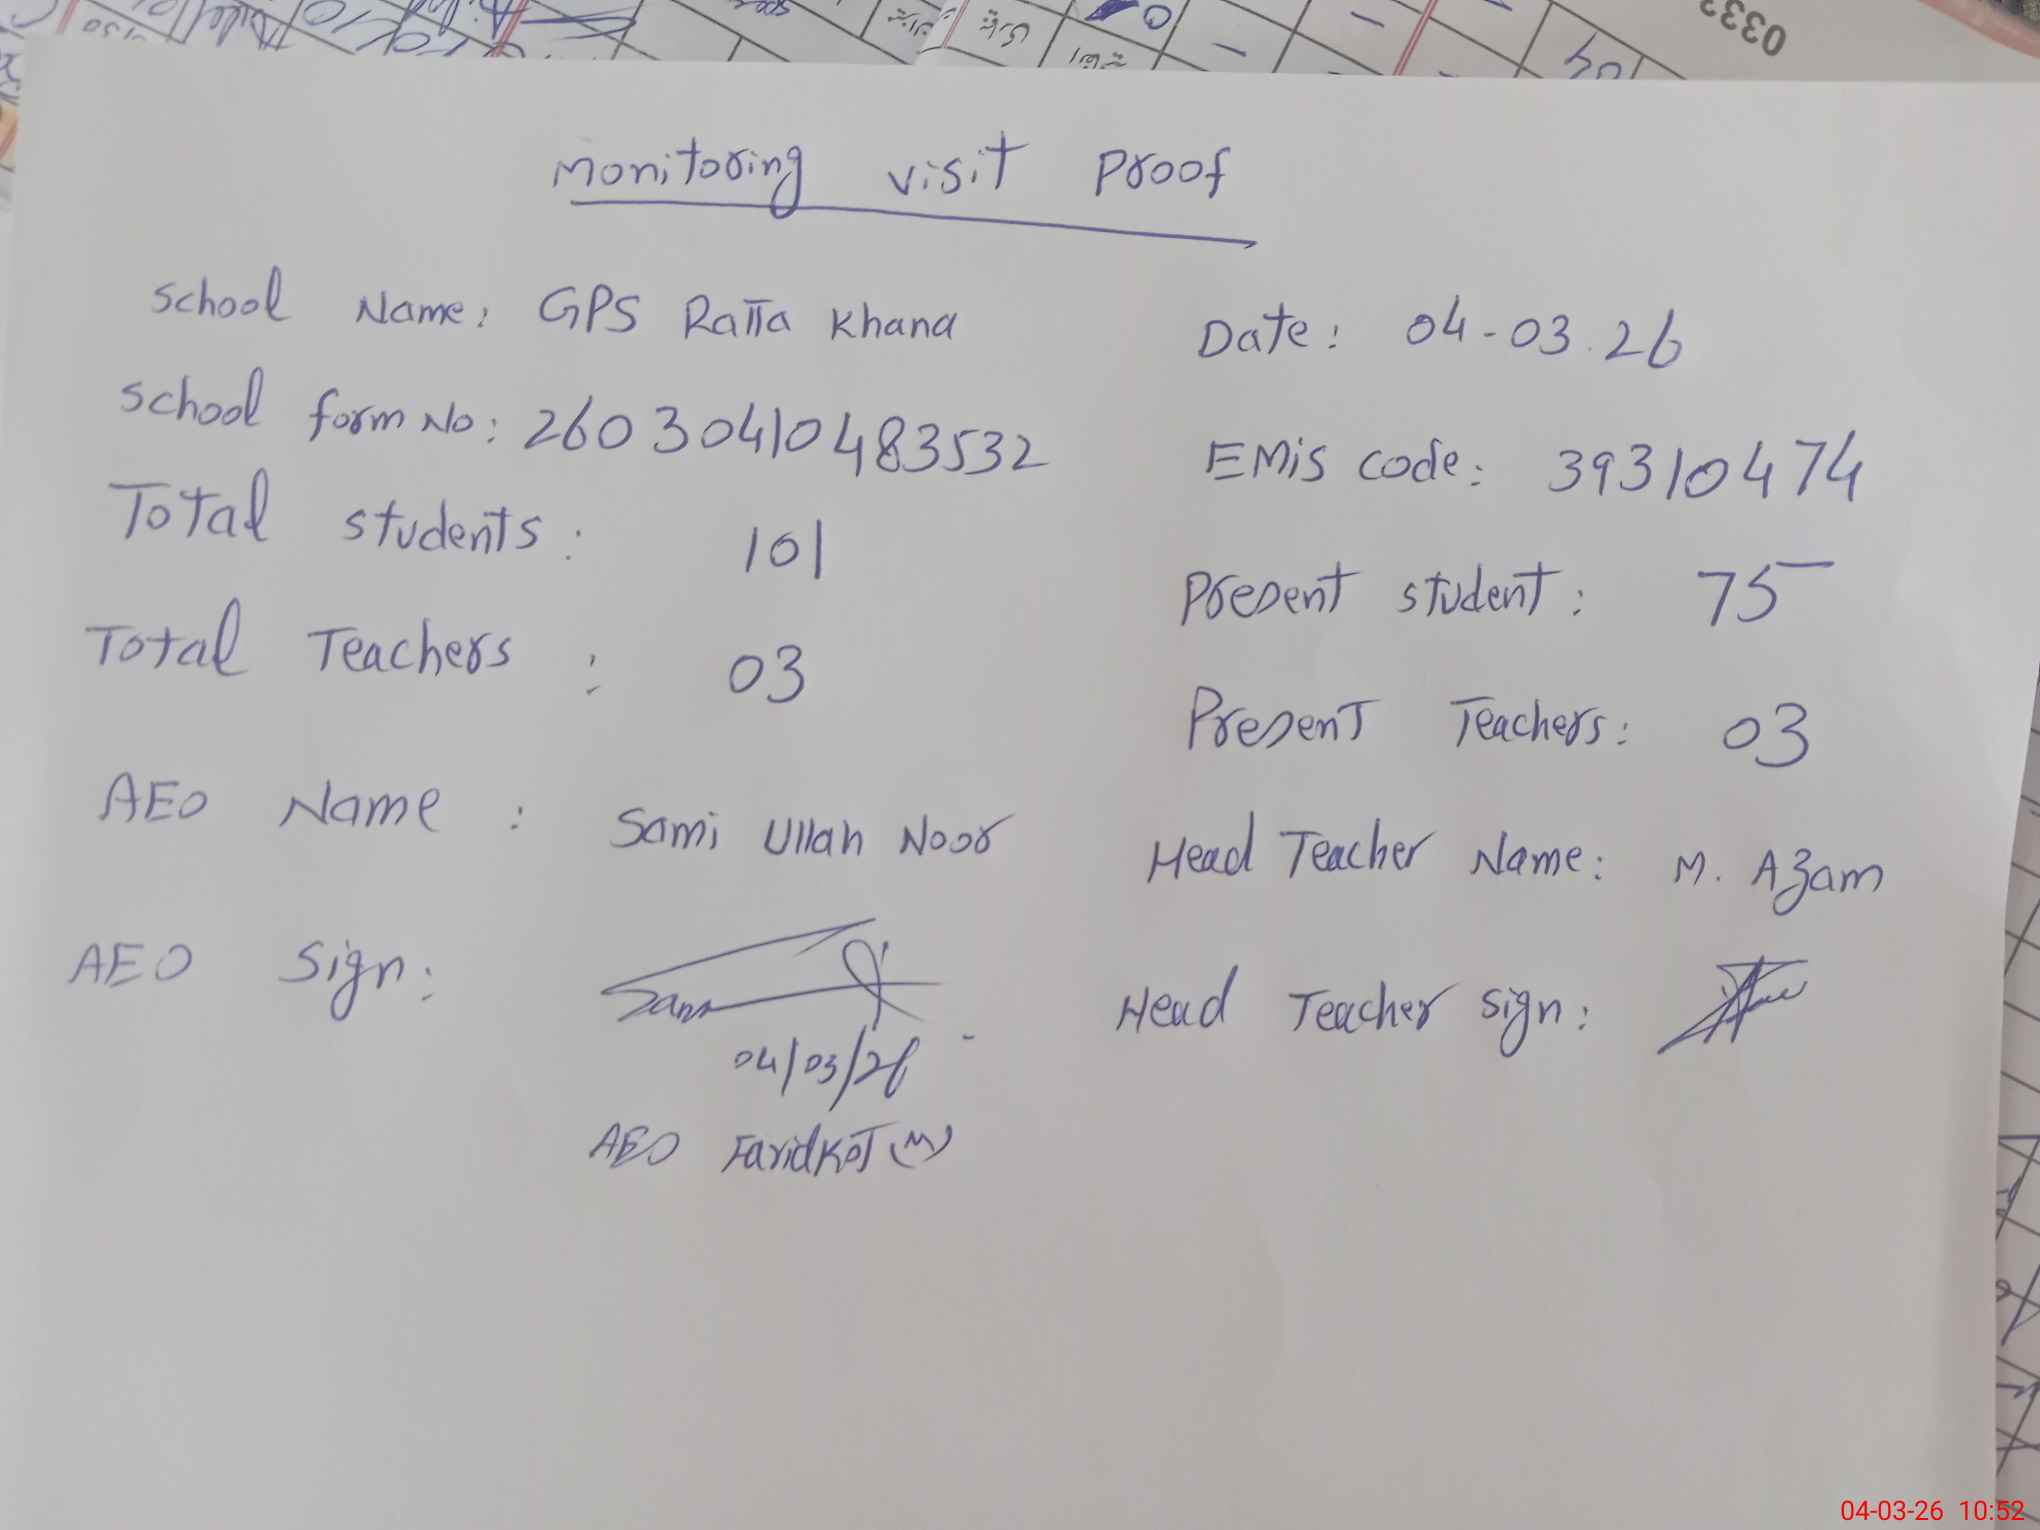 Monitoring visit Proof
School Name: GPS Ratta Khana
Date: 04-03.26
School form No: 26030410483532
EMiS code: 39310474
Total students: 101
Present student: 75
Total Teachers: 03
Present Teachers: 03
AEO Name: Sami Ullah Noor
Head Teacher Name: M. Azam
AEO Sign:
Head Teacher Sign:
04/03/26
AEO FaridKot (M)
0333
04-03-26 10:52